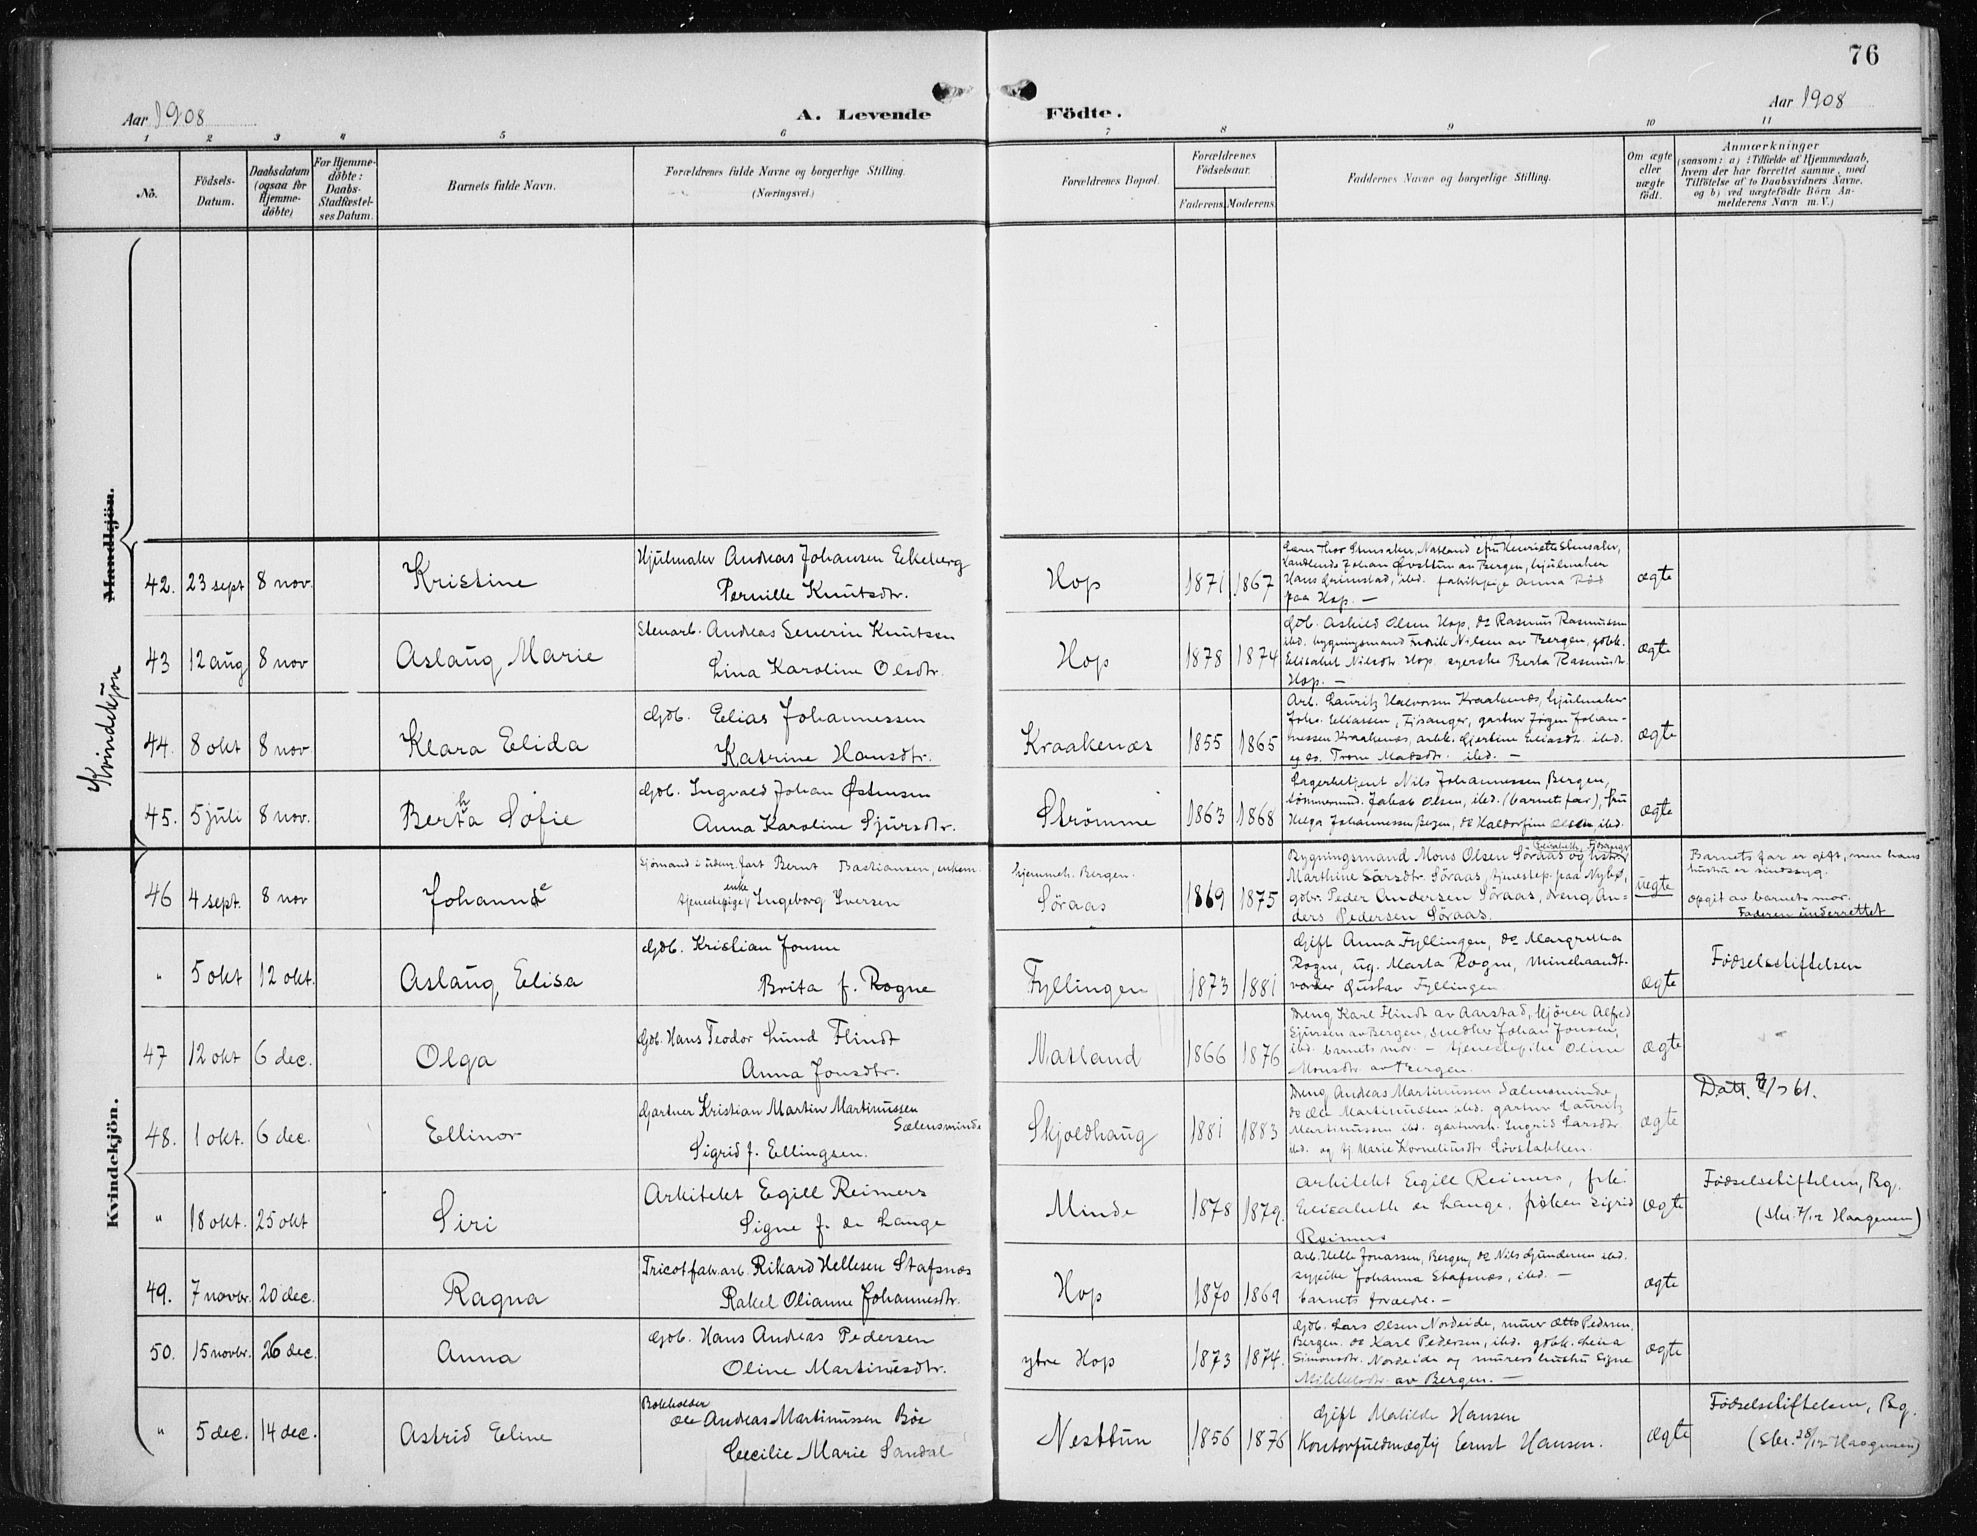 76
Aar 1908
A. Levende
Födte.
Aar 1908
1 2 3 4 5 6 7 8 9 10 11
No.
Födsels-
Datum.
Daabsdatum
(ogsaa for
Hjemme-
döbte)
For Hjemme-
döbte:
Daabs-
Stadfæstel-
ses Datum.
Barnets fulde Navn.
Forældrenes fulde Navne og borgerlige Stilling.
(Næringsvei.)
Forældrenes Bopæl.
Forældrenes
Födselsaar.
Faderens.
Moderens.
Faddernes Navne og borgerlige Stilling.
Om ægte
eller
uægte
födt.
Anmærkninger
(saasom: a) i Tilfælde af Hjemmedaab,
hvem der har forrettet samme, med
Tilföielse af to Daabsvidners Navne,
og b) ved uægtefödte Börn An-
melderens Navn m. V.)
Mandkjön.
Kvindekjön
Kvindekjön.
42. 23 sept 8 nov. Kristine
Hjulmaker Andreas Johansen Eikeberg
Pernille Knutsdtr.
Hop 1871 1867
Lærer Thor Stensaker, Natland, fru Henriette Stensaker,
Handlende Johan Øvsttun av Bergen, hjulmaker
Hans Grimstad, ibd. fabrikpige Anna
paa Hop. —
ægte
43 12 aug 8 nov Aslaug Marie
Stenarb. Andreas Severin Knutsen
Lina Karoline Olsdtr.
Hop 1878 1874
Gdb. Askild Olsen Hop, do Rasmus Rasmussen
ibd. bygningsmand Fredrik Nilsen av Bergen, gdbk.
Elisabet Nilsdtr. Hop, syerske Berta Rasmusdtr.
Hop. —
ægte
44. 8 okt 8 nov. Klara Elida
Gdb. Elias Johannessen
Katrine Hansdtr.
Kraakenæs 1855 1865
Arb. Lauritz Halvorsen Kraakenæs, hjulmaker
Johs. Eliassen, Fjøsanger, gartner Jørgen Johan-
nessen Kraakenæs, arbk. Gjertine Eliasdtr. ibd.
Madsdtr. ibd. —
ægte
45. 5 juli 8 nov. Bertha Sofie
Gdb. Ingvald Johan Østensen
Anna Karoline Sjursdtr.
Strømme 1863 1868
Lagerbetjent Nils Johannessen Bergen,
tømmermd. Jakob Olsen, ibd. (barnets far), fru
Helga Johannessen Bergen, do Haldorfine Olsen, ibd.
ægte
46 4 sept. 8 nov Johanne
Sjømand i udenr. fart Bernt Bastiansen, enkem.
enke
tjenestepige Ingeborg Iversen
hjemmeh. Bergen.
Søraas 1869 1875
Elisabeth, Fjøsanger
Bygningsmand Mons Olsen Søraas og hustru
Marthine Larsdtr. Søraas, tjenestep. paa Nybø,
gdbr. Peder Andersen Søraas, dreng An-
ders Pedersen Søraas.
uegte
Barnets far er gift, men hans
hustru er sindssyg.
opgit av barnets mor.
Faderen underrettet
" 5 okt 12 okt. Aslaug Elisa
Gdb. Kristian Jonsen
Brita f. Rogne
Fyllingen 1873 1881
Gift Anna Fyllingen, do Margretha
Rogne, ug. Marta Rogne,
Gustav Fyllingen
ægte
Fødselsstiftelsen
47 12 okt 6 dec. Olga
Gdb. Hans Teodor Lund Flindt
Anna Jonsdtr.
Natland 1866 1876
Dreng Karl Flindt av Aarstad, kjører Alfred
Sjursen av Bergen, snedker Johan Jonsen,
ibd. barnets mor — tjenestepike Oline
Monsdtr. av Bergen.
ægte
48. 1 okt. 6 dec. Ellinor
Gartner Kristian Martin Martinussen
Sælensminde
Sigrid f. Ellingsen.
Skjoldhaug 1881 1883
Dreng Andreas Martinussen Sælensminde,
do Ole Martinussen ibd. gartner Lauritz
Martinussen ibd. gartnersk. Ingrid Larsdtr
ibd. og tj. Marie Korneliusdtr Løvstakken.
ægte
Datt. 9/7 61.
" 18 okt. 25 okt Siri
Arkitekt Egill Reimers
Signe f. de Lange
Minde 1878 1879.
Arkitekt Egill Reimers, frk.
Elisabeth de Lange, frøken Sigrid
Reimers
ægte
Fødselsstiftelsen, Bg.
(skr. 7/12 Haagensen)
49. 7 novbr. 20 dec. Ragna
Tricotfabr.arb. Rikard Hellesen Stafsnæs
Rakel Olianne Johannesdtr.
Hop 1870 1869
Arb. Helle Jonassen, Bergen, do Nils Gundersen ibd.
sypike Johanna Stafsnæs, ibd. —
barnets forældre. —
ægte
50. 15 novbr. 26 dec. Anna
Gdb. Hans Andreas Pedersen
Oline Martinusdtr.
ytre Hop 1873 1874.
Gdb. Lars Olsen Nordeide, murer Otto Pedersen,
Bergen, do Karl Pedersen, ibd. gdbk.
Simonsdtr. Nordeide og murers hustru Signe
Mikkelsdtr. av Bergen. —
ægte
" 5 dec. 14 dec. Astrid Eline
Bokholder
Ole Andreas Martinussen Bøe
Cecilie Marie Sandal
Nesttun 1856 1876
Gift Matilde Hansen
Kontorfuldmægtig Ernst Hansen.
ægte
Fødselsstiftelsen, Bg.
(skr. 28/12 Haagensen)